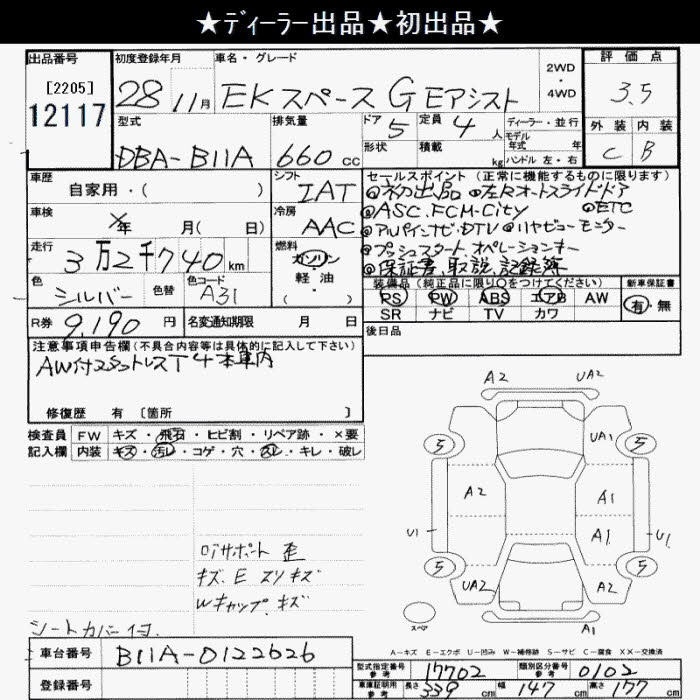 ★ディーラー出品★初出品★
出品番号
[2205]
12117
初度登録年月
28 11月
車名・グレード
EKスペース G Eアシスト
2WD
・
4WD
評価点
3.5
外装 内装
C B
型式
DBA-B11A
排気量
660cc
ドア 5
定員 4人
形状
積載 kg
ディーラー・並行
モデル年式 年
ハンドル 左・右
車歴
自家用・( )
シフト
IAT
車検
年 月( 日)
冷房
AAC
走行
3万2千740km
燃料
ガソリン
軽・油
・( )
色
シルバー
色替
色コード
A31
R券
9,190円
名変通知期限 月 日
セールスポイント(正常に機能するものに限ります)
◎初出品 ◎左Rオートスライドドア
◎ASC.FCM-City ◎ETC
◎アルパインナビ・DTV ◎リヤビューモニター
◎プッシュスタート オペレーションキー
◎保証書、取説、記録簿
装備品(純正品に限り○をつけてください)
PS PW ABS エアB AW
SR ナビ TV カワ
新車保証書
有・無
後日品
注意事項申告欄(不具合内容等は具体的に記入して下さい)
AW付スタットレスT4本車内
修復歴 有〔箇所 〕
検査員 FW キズ・飛石・ヒビ割・リペア跡・×要
記入欄 内装 キズ・汚レ・コゲ・穴・スレ・キレ・破レ
A2 UA2
5 UA1 5
A2 A1
U1 A1 U1
5 UA2 A2 5
スペア
A1
ロアサポート 歪
キズ.E スリキズ
Wキャップ.キズ
シートカバー付.
A-キズ E-エクボ U-凹み W-補修跡 S-サビ C-腐食 XX-交換済
車台番号 B11A-0122626
登録番号
型式指定番号参考 17702
類別区分番号参考 0102
車庫証明用参考 長さ 339cm 幅 147cm 高さ 177cm